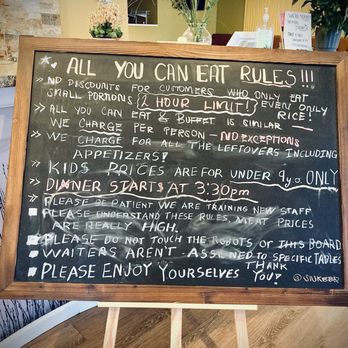 ALL YOU CAN EAT RULES!!!
» NO DISCOUNTS FOR CUSTOMERS WHO ONLY EAT
SMALL PORTIONS (2 HOUR LIMIT!) EVEN ONLY
RICE!
» ALL YOU CAN EAT & BUFFET IS SIMILAR —
WE CHARGE PER PERSON - NO EXCEPTIONS
» WE CHARGE FOR ALL THE LEFTOVERS INCLUDING
APPETIZERS!
» KIDS PRICES ARE FOR UNDER 9y.o. ONLY
» DINNER STARTS AT 3:30pm
» PLEASE BE PATIENT WE ARE TRAINING NEW STAFF
PLEASE UNDERSTAND THESE RULES, MEAT PRICES
ARE REALLY HIGH.
PLEASE DO NOT TOUCH THE ROBOTS OR THIS BOARD
WAITERS AREN'T ASSIGNED TO SPECIFIC TABLES
PLEASE ENJOY YOURSELVES THANK
YOU!